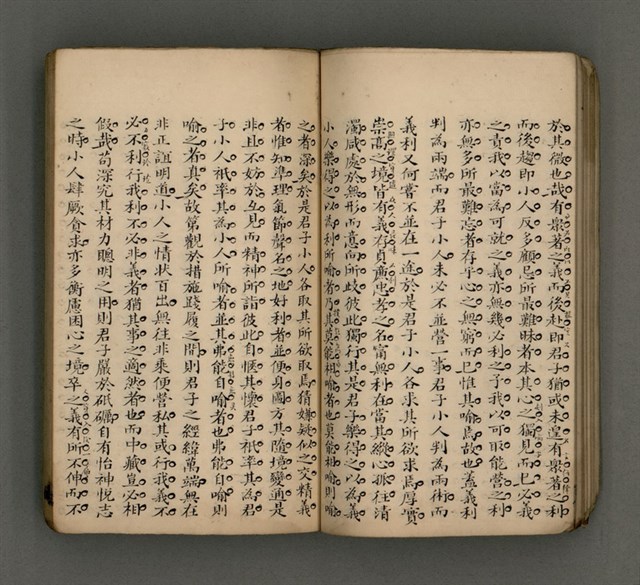 於其微也哉有眾著之義而後赴即君子猶或未遑有眾著之利
而後趨即小人反多顧忌所最難昧者本其心之獨見而已必義
之責我以當為可就之義亦無幾必利之予我以可取能營之利
亦無多所最難忘者存乎心之無窮而已惟其喻焉故也蓋義利
判為兩端而君子小人未必不並營一事君子小人判為兩術而
義利又何嘗不並在一途於是君子小人各求其所欲求焉厚實
崇高之境皆有義存貞廉忠孝之名當無利在當其縱心孤往清
濁咸處於無形而意向所歧彼此獨行其是君子樂得之以為義
小人樂得之以為利所喻者乃其莫能相喻者也莫能相喻則喻
之者深矣於是君子小人各取其所欲取焉猜嫌疑似之交精義
者惟知準理氣節聲名之地好利者並便身圖方其隨境變通是
非且不妨於互見而精神所詣彼此自愜其懷君子祇率其為君
子小人祇率其為小人所喻者並其弗能自喻者也弗能自喻則
喻之者真矣故第觀於措施踐履之間則君子之經緯萬端無在
非正誼明道小人之情狀百出無往非乘便營私其或行我義不
必不利行我利不必非義者猶其事之適然者也而中藏豈必相
假哉苟深究其材力聰明之用則君子嚴於砥礪自有怡神悅志
之時小人肆厥貪求亦多衡慮困心之境卒之義有所不伸而不